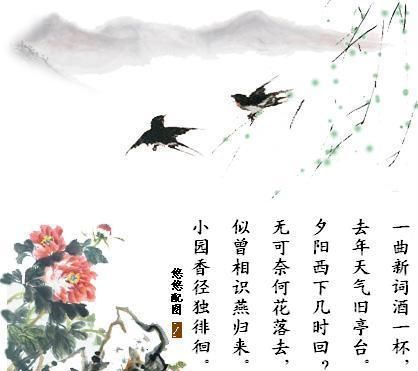 一曲新词酒一杯，
去年天气旧亭台。
夕阳西下几时回？
无可奈何花落去，
似曾相识燕归来。
小园香径独徘徊。
悠悠配图